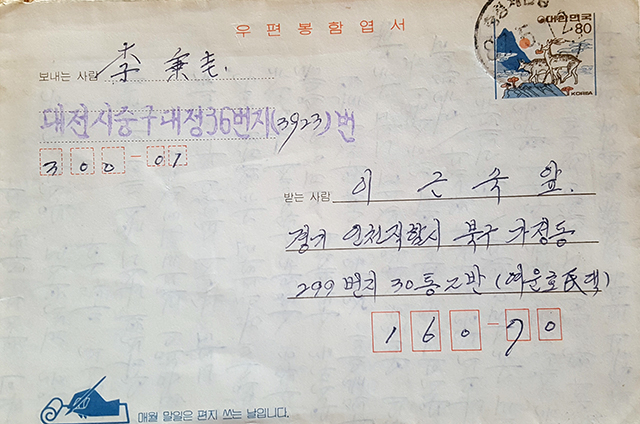 우편봉함엽서
대한민국
80
KOREA
보내는 사람 李秉
대전시중구대정36번지(3923)번
300-01
받는 사람 이근숙 앞.
경기 인천직할시 북구 가정동
299번지 30통 2반 (여운호氏댁)
160-70
매월 말일은 편지 쓰는 날입니다.